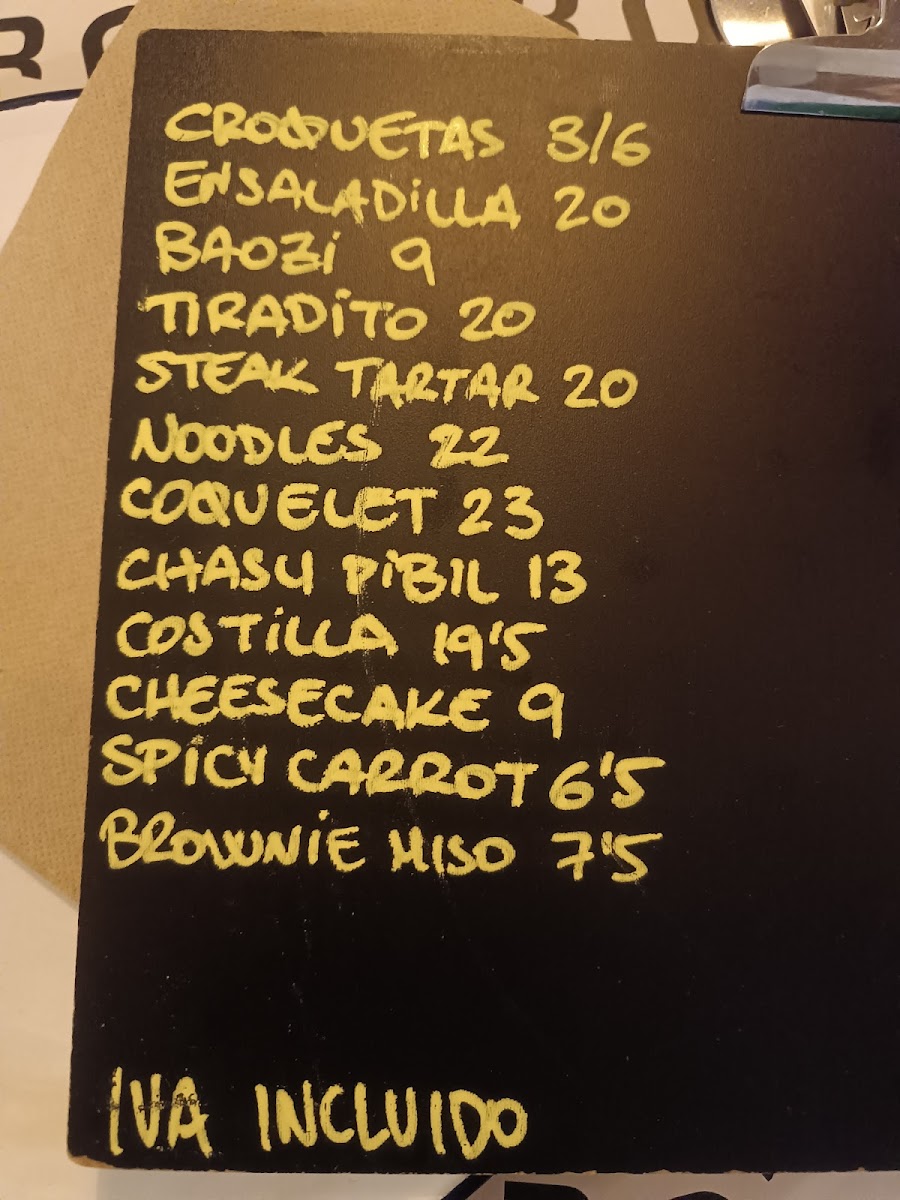 CROQUETAS 3/6
ENSALADILLA 20
BAOZI 9
TIRADITO 20
STEAK TARTAR 20
NOODLES 22
COQUELET 23
CHASU PIBIL 13
COSTILLA 19'5
CHEESECAKE 9
SPICY CARROT 6'5
BROWNIE MISO 7'5
IVA INCLUIDO